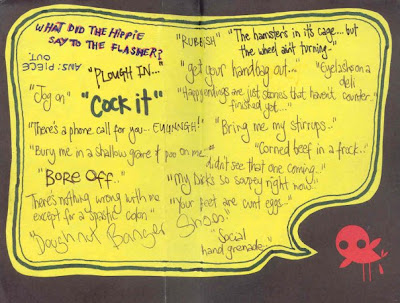 WHAT DID THE HIPPIE
SAY TO THE FLASHER?
ANS: PIECE
OUT.
"RUBBISH"
"The hamster's in it's cage... but
the wheel aint turning"
"PLOUGH IN..."
"get your handbag out..."
"Eyelashes on a
deli
counter.."
"Jog on"
"Cock it"
"Happy endings are just stories that haven't
finished yet..."
"There's a phone call for you... EUUNNGH!"
"Bring me my stirrups.."
"Bury me in a shallow grave & poo on me..."
"Corned beef in a frock.."
"didn't see that one coming..."
"BORE OFF.."
"My bick's so soupey right now"
There's nothing wrong with me
except for a "spastic colon"
"Your feet are cunt eggs..."
"Doughnut Banger Shoes"
"Social
hand grenade.."